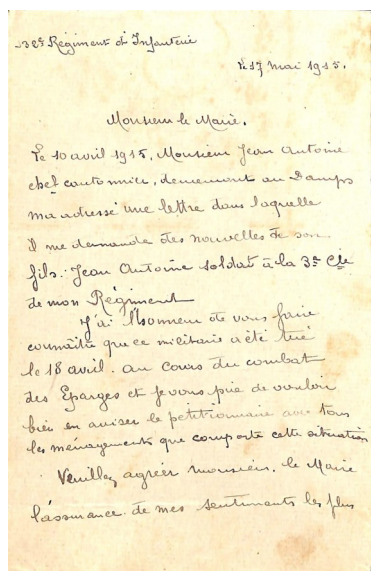 -32e Régiment d'Infanterie
le 17 mai 1915.
Monsieur le Maire.
Le 10 avril 1915, Monsieur Jean Antoine
chef cantonnier, demeurant au Damps
m'a adressé une lettre dans laquelle
il me demande des nouvelles de son
fils. Jean Antoine soldat à la 3e Cie
de mon Régiment
J'ai l'honneur de vous faire
connaître que ce militaire a été tué
le 18 avril. au cours du combat
des Eparges et je vous prie de vouloir
bien en aviser le petitionnaire avec tous
les ménagements que comporte cette situation
Veuillez agréer monsieur, le Maire
l'assurance de mes sentiments les plus